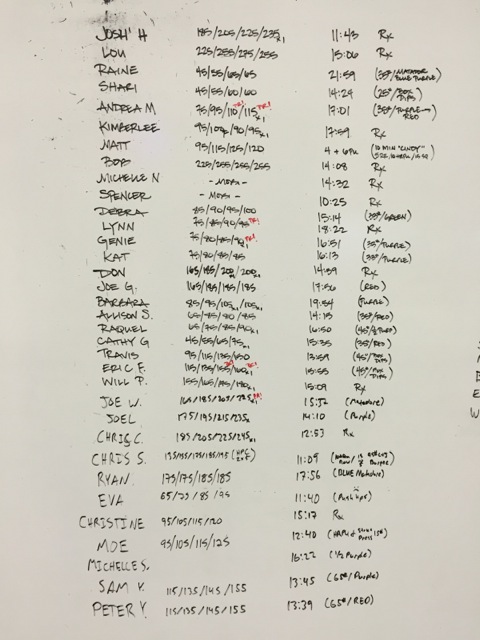 JOSH H 185/205/225/235x1 11:43 Rx
LOU 225/255/275/255 15:06 Rx
RAINE 45/55/65/65 21:59 (35#/MATADOR BLUE PURPLE)
SHARI 45/55/60/60 14:24 (25# BOX DIPS)
ANDREA M 75/95/110/115x1 PR! PR! 17:01 (35#/PURPLE RED)
KIMBERLEE 95/90/95x1 17:59 Rx
MATT 95/115/125/120 4 + 6PU (10 MIN "CINDY"
BOB 225/255/255/255 14:08 Rx
MICHELLE N - MOES - 14:32 Rx
SPENCER - MOES - 10:25 Rx
DEBRA 85/90/95/100 15:14 (35#/GREEN)
LYNN 75/85/90/95 PR! 18:22 Rx
GENIE 75/80/85/90x1 PR! 16:51 (35#/PURPLE)
KAT 75/80/85/85 16:13 (35#/PURPLE)
DON 165/185/200/200x1 14:59 Rx
JOE G. 165/185/185/185 17:56 (RED)
BARBARA 85/95/105x1/105x1 19:54 (PURPLE)
ALLISON S. 65/85/80/85 14:15 (35#/RED)
RAQUEL 65/75/85/90x1 16:50 (45#/RED)
CATHY G 45/55/65/75x1 15:35 (35#/RED)
TRAVIS 95/115/135/150 13:59 (45#/BOX DIPS)
ERIC F. 115/135/155/160x1 PR! 15:55 (45#/BOX DIPS)
WILL P. 155/165/185/190x1 15:09 Rx
JOE W. 165/185/205/225x1 PR! 15:52 (Matadore)
JOEL 175/195/215/235x 14:10 (Purple)
CHRIS C. 185/205/225/245x1 12:53 Rx
CHRIS S. 135/155/175/195/195 11:09
RYAN. 173/175/185/185 17:56 (BLUE Matadore)
EVA 65/75/85/95 11:40 (Push Ups)
CHRISTINE 95/105/115/120 15:17 Rx
MOE 95/105/115/125 12:40
MICHELLE S. 16:22 (1/2 Purple)
SAM Y. 115/135/145/155 13:45 (65#/Purple)
PETER Y. 115/135/145/155 13:39 (65#/RED)